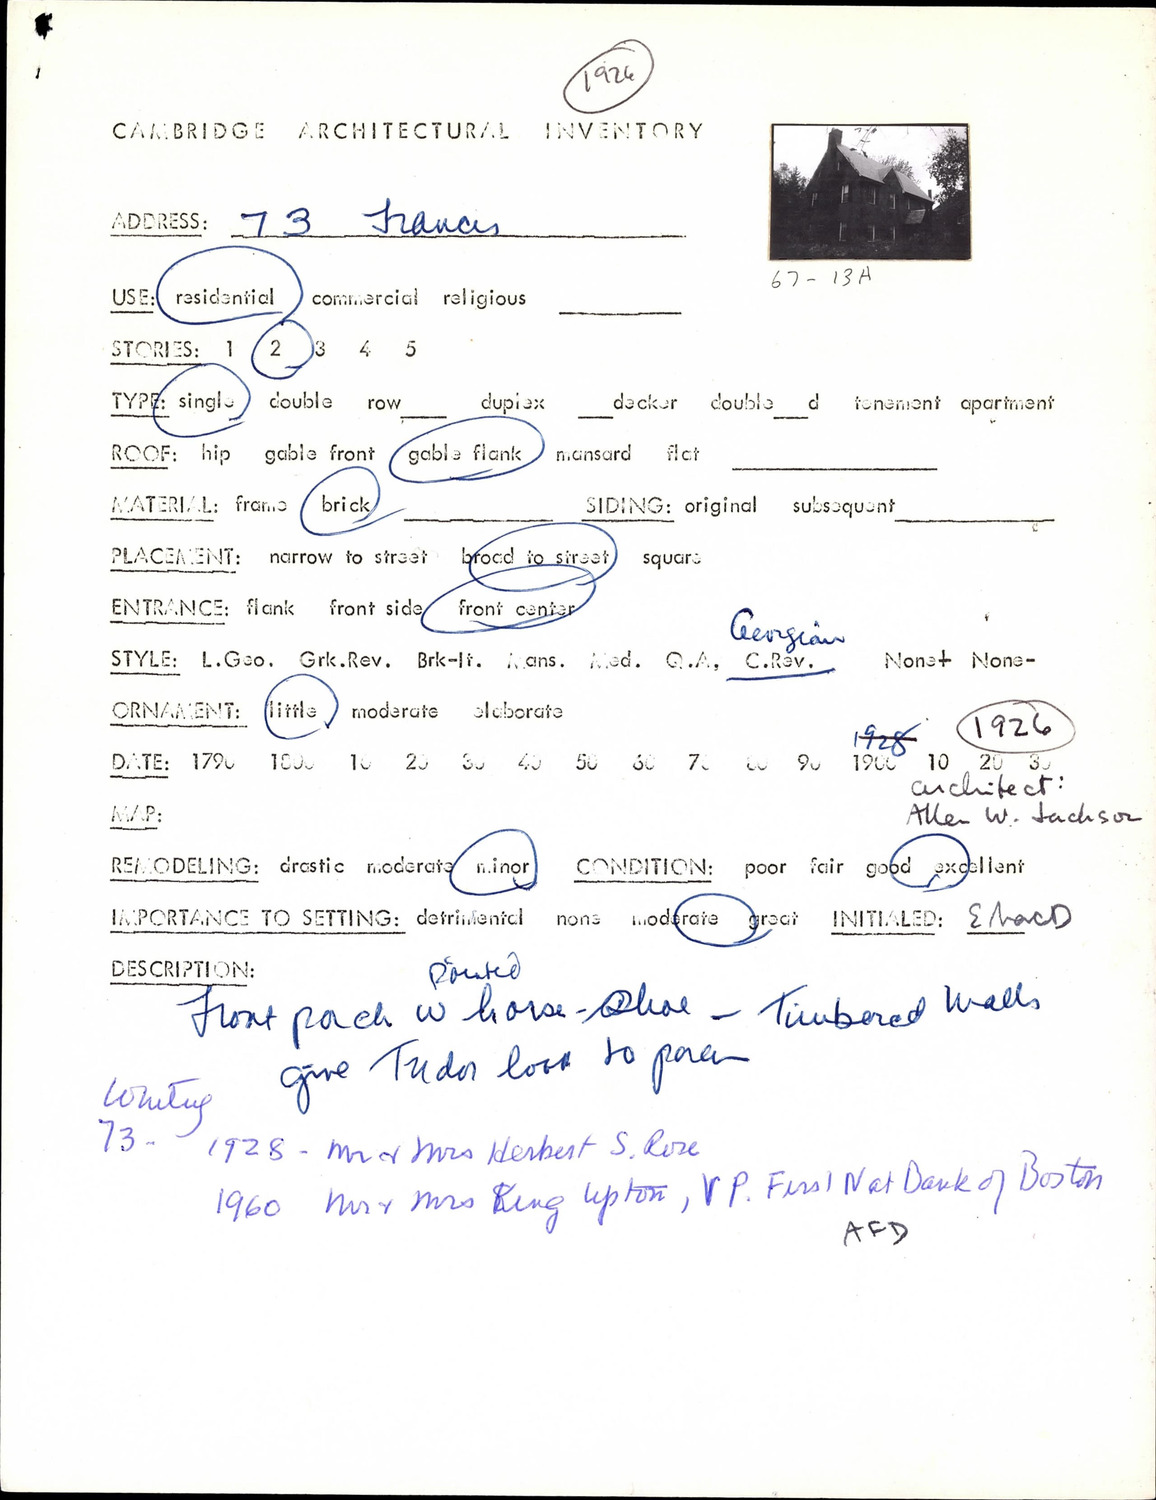 1926
CAMBRIDGE ARCHITECTURAL INVENTORY
ADDRESS: 73 Francis
67-13A
USE: residential commercial religious
STORIES: 1 2 3 4 5
TYPE: single double row____ duplex ___decker double___d tenement apartment
ROOF: hip gable front gable flank mansard flat
MATERIAL: frame brick SIDING: original subsequent
PLACEMENT: narrow to street broad to street square
ENTRANCE: flank front side front center
Georgian
STYLE: L.Geo. Grk.Rev. Brk-It. Mans. Med. Q.A. C.Rev. None+ None-
ORNAMENT: little moderate elaborate
1928 1926
DATE: 1790 1800 10 20 30 40 50 60 70 80 90 1900 10 20 30
architect:
Allen W. Jackson
MAP:
REMODELING: drastic moderate minor CONDITION: poor fair good excellent
IMPORTANCE TO SETTING: detrimental none moderate great INITIALED: EMacD
DESCRIPTION:
pointed
Front porch w horse-shoe - Timbered walls
give Tudor look to porch
Whiting
73- 1928 - Mr & Mrs Herbert S. Rose
1960 Mr & Mrs King Upton, V P. First Nat Bank of Boston
AFD